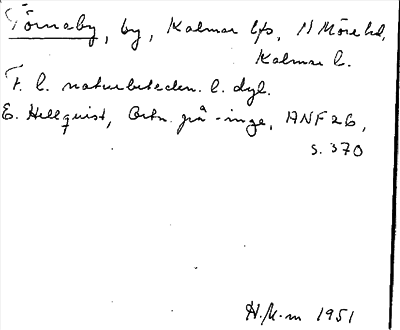 Törnaby, by, Kalmar lfs, N Möre hd,
Kalmar l.
F. l. naturbeteckn. l. dyl.
E. Hellquist, Ortn. på -inge, ANF 26,
s. 370
H.K-m 1951